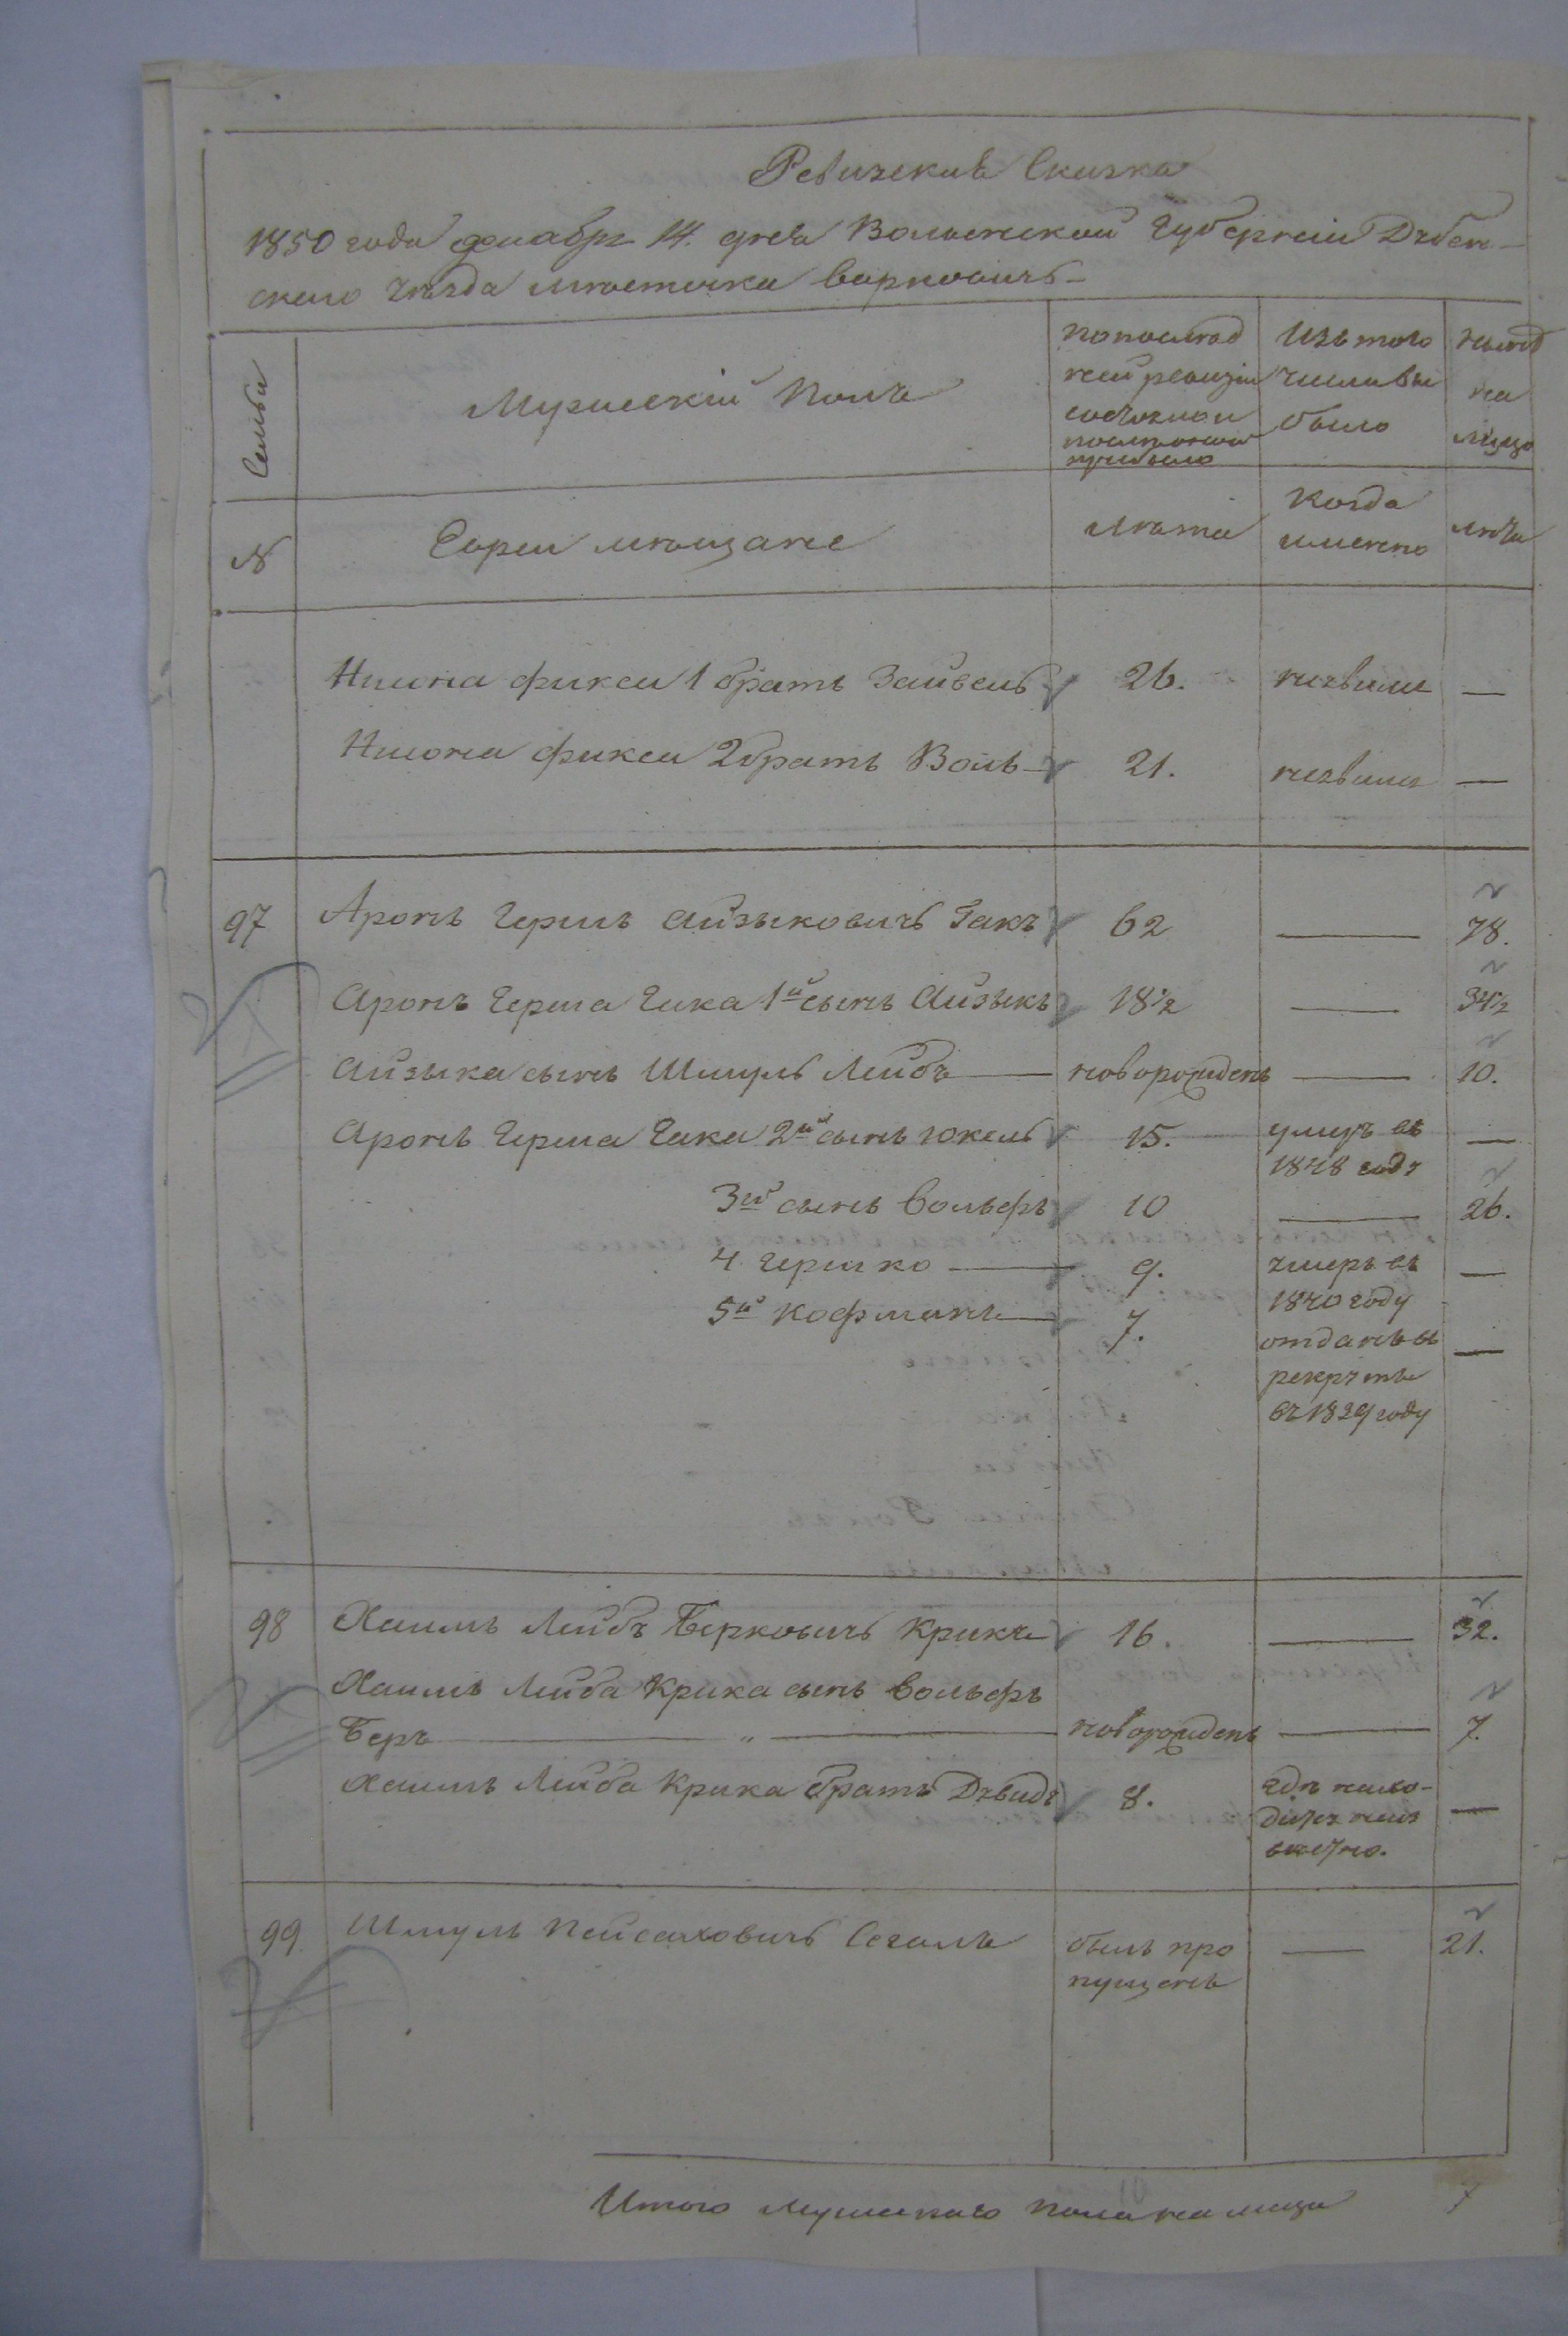 Ревизская Сказка
1850 года декабря 14. дня Волынской Губернии Дубен-
ского уезда местечка Варкович-
Семьи
Мужеский Полъ
по послед
ней ревизiи
состояло и
после того
прибыло
Изъ того
числа вы
было
ныне
на
лицо
№
Евреи мещане
лета
Когда
именно
лета
фикса 1 братъ Зайвель 26. —
фикса 2 братъ Воль 21. —
97 Аронъ Гершъ Айзыковичъ Гакъ 62 — 78.
Аронъ Герша Гака 1й сынъ Айзыкъ 18½ — 34½
Айзыка сынъ Шмуль Лейбъ — новорожденъ — 10.
Аронъ Герша Гака 2й сынъ Юкель 15. умеръ въ —
1848 году
3й сынъ Вольфъ 10 — 26.
4 Гершко — 9. умеръ въ —
1840 году
5й Кофманъ — 7. отданъ въ —
рекруты
въ 1839 году
98 Хаимъ Лейбъ Берковичъ Крикъ 16. — 32.
Хаимъ Лейба Крика сынъ Вольфъ
Беръ — „ — новорожденъ — 7.
Хаимъ Лейба Крика братъ Дувидъ 8. где нахо- —
дится неиз
вестно.
99 Шмуль Пейсаховичъ Сегалъ былъ про — 21.
пущенъ
Итого мужескаго пола на лицо 7